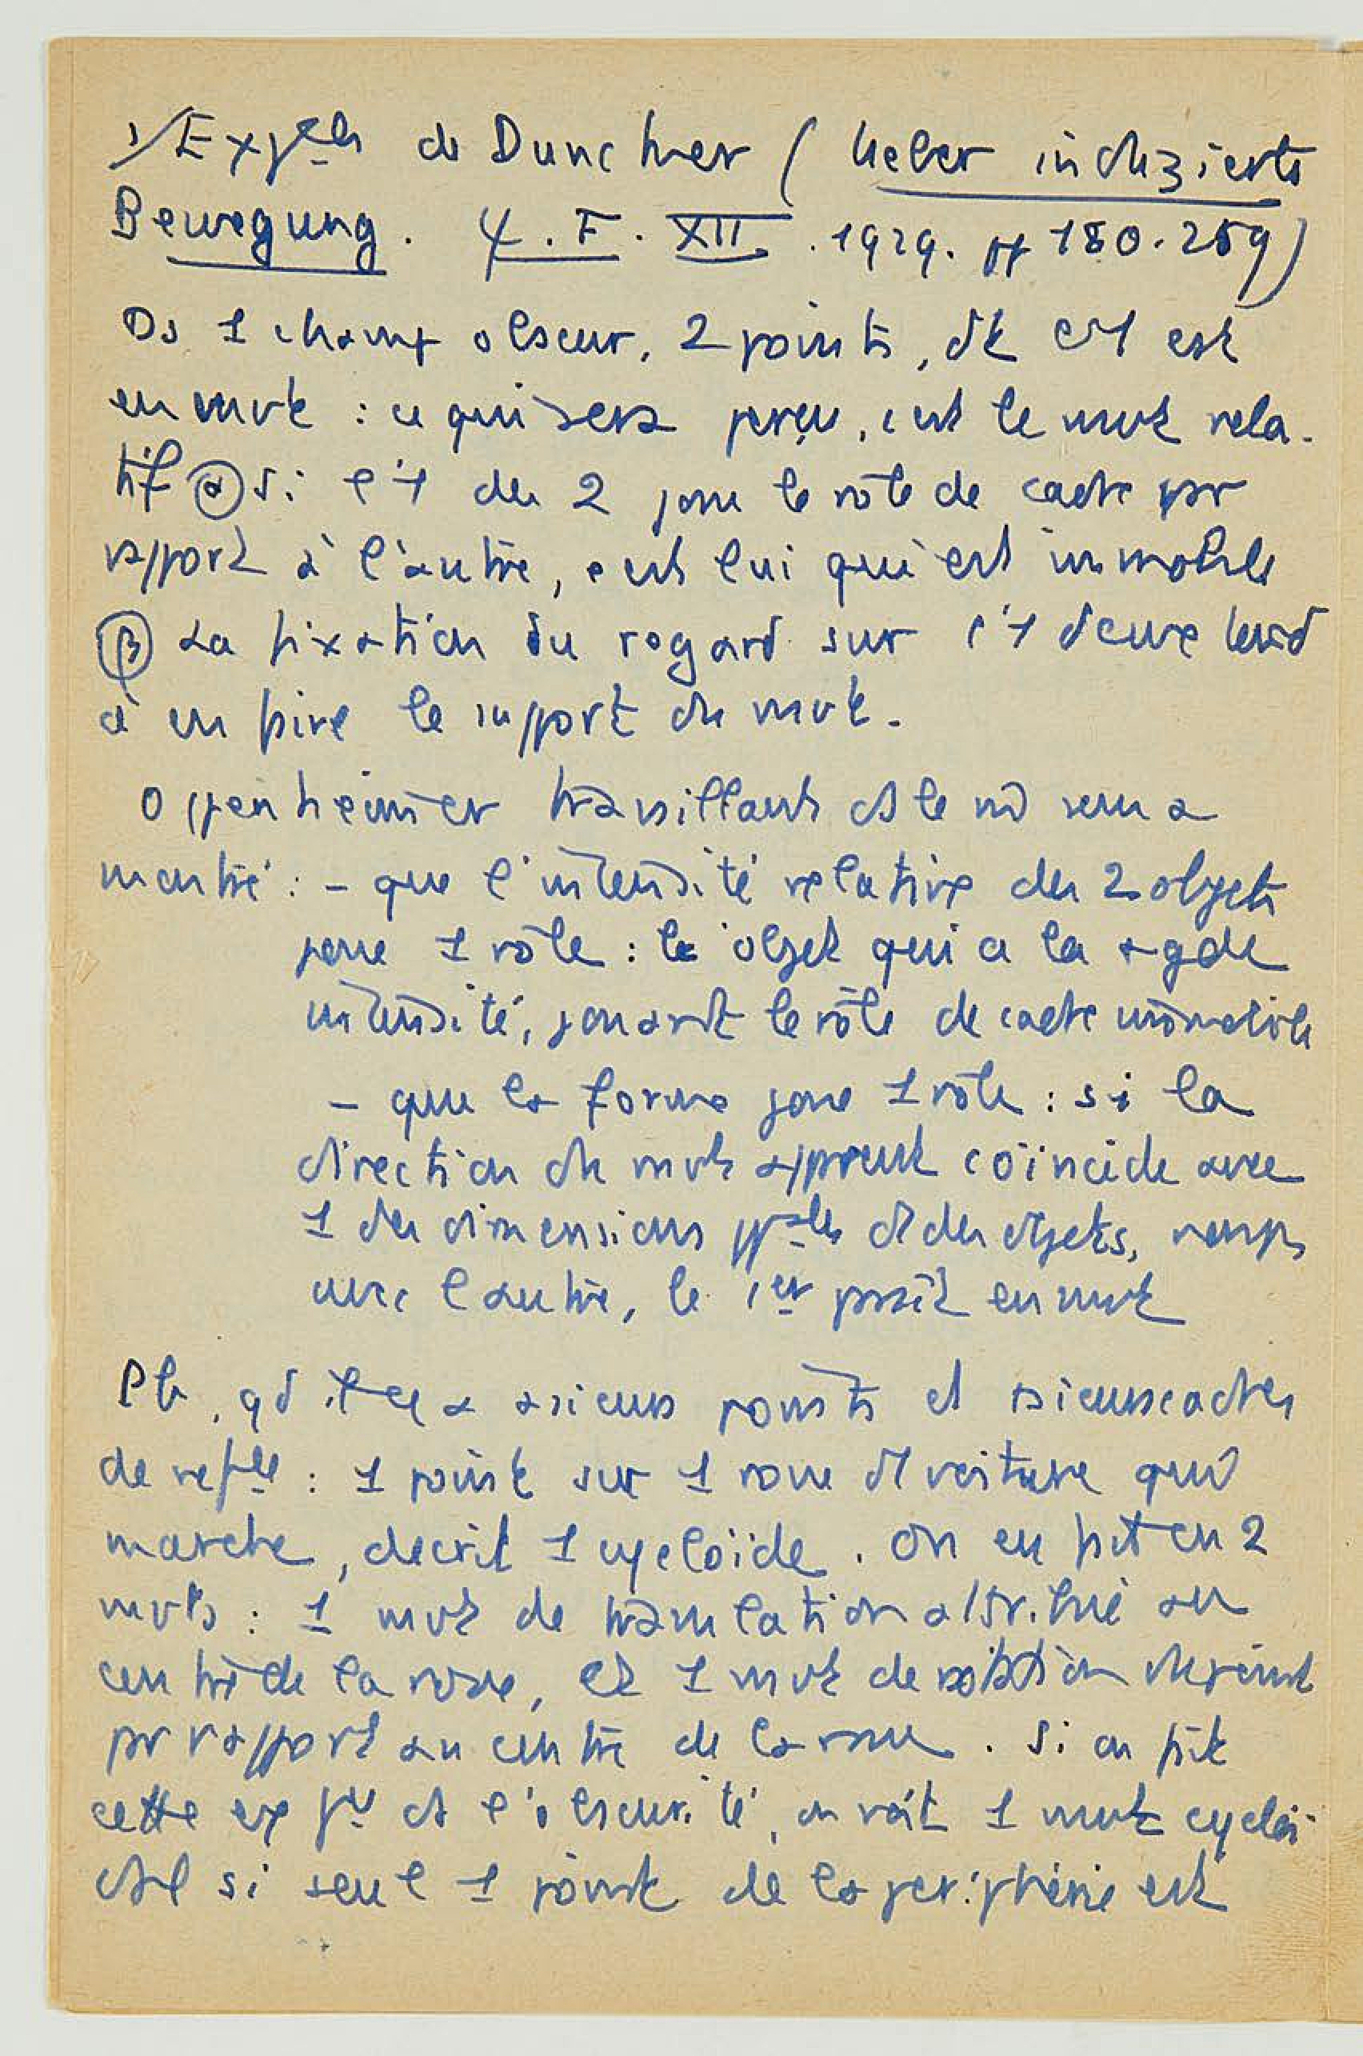 1/ Expces de Duncker (Ueber induzierte
Bewegung. Y. F. XII. 1929. pp 180-259)
Ds 1 champ obscur, 2 points, dt l'1 est
en mvt : ce qui sera perçu, c'est le mvt rela-
tif ⓐ si l'1 des 2 joue le rôle de cadre par
rapport à l'autre, c'est lui qui est immobile
ⓑ La fixation du regard sur l'1 d'eux tend
à en faire le support du mvt.
Oppenheimer travaillant ds le m̂ sens a
montré : - que l'intensité relative des 2 objets
joue 1 rôle : le objet qui a la + gde
intensité, jouant le rôle de cadre immobile
- que la forme joue 1 rôle : si la
direction du mvt apparent coïncide avec
1 des dimensions ppales d'1 des objets, non pas
avec l'autre, le 1er paraît en mvt
Pb, qd il y a +sieurs points et +sieurs cadres
de refce : 1 point sur 1 roue d'1 voiture qui
marche, décrit 1 cycloïde. On en fait en 2
mvts : 1 mvt de translation attribué au
centre de la roue, et 1 mvt de rotation du point
pr rapport au centre de la roue. Si on fait
cette expce ds l'obscurité, on voit 1 mvt cycloï-
dal si seul 1 point de la périphérie est